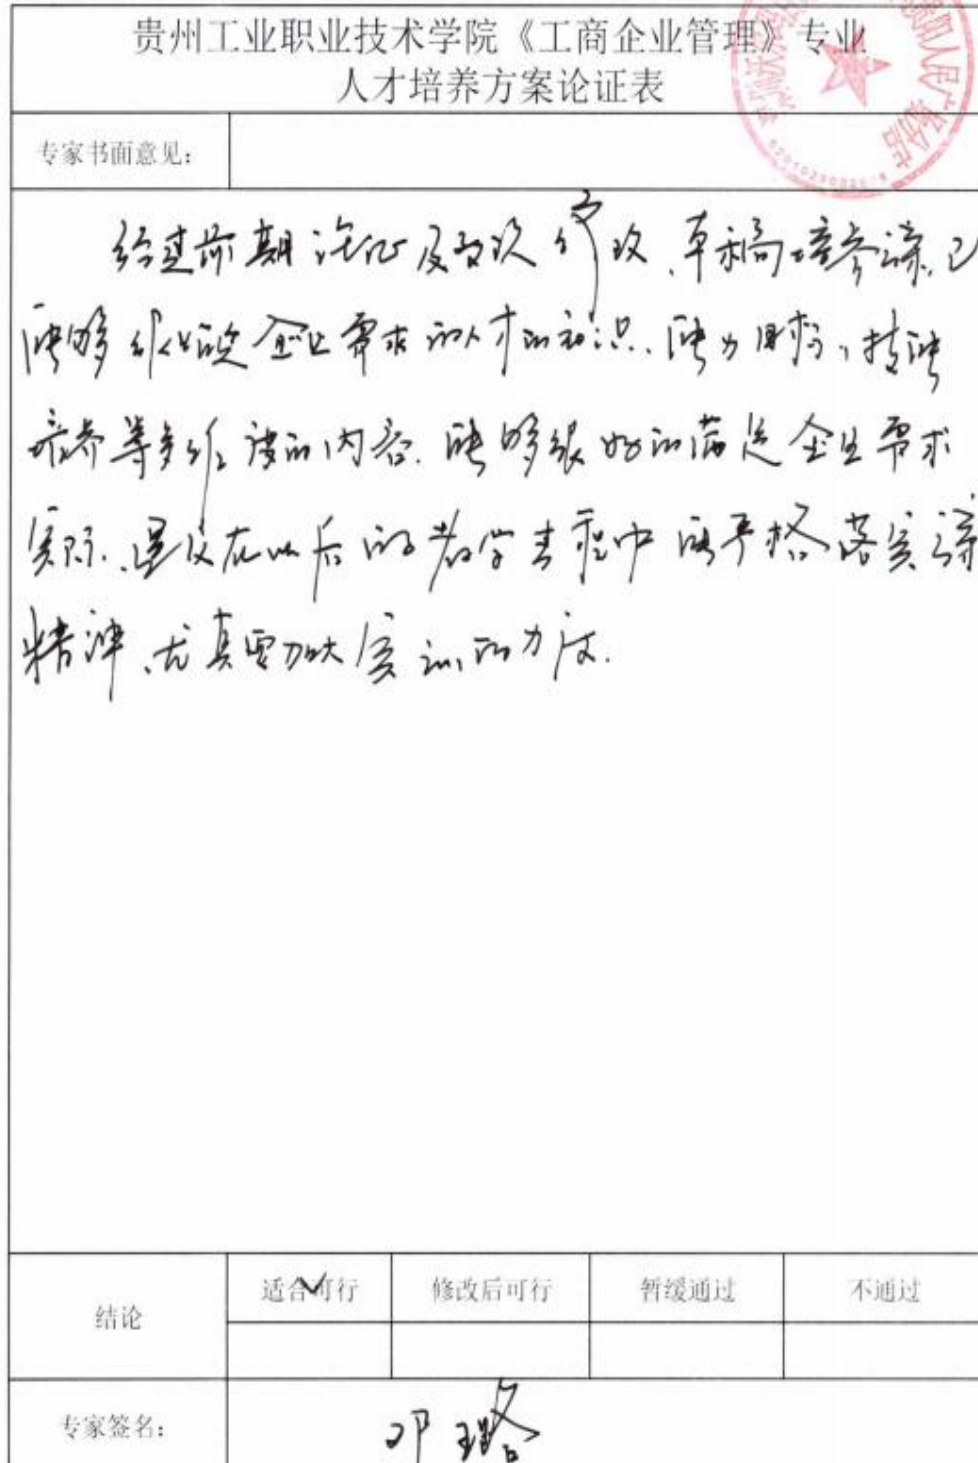 贵州工业职业技术学院《工商企业管理》专业
人才培养方案论证表
专家书面意见：
经过前期论证及数次修改，草稿培养方案，已
能够 企业需求的人才的知识、能力目标、技能
培养等多维度的内容，能够很好的满足企业需求
实际，建议在以后的教学过程中能严格落实
精神，尤其要加大实训的力度.
结论
适合可行 修改后可行 暂缓通过 不通过
专家签名：
邓璐